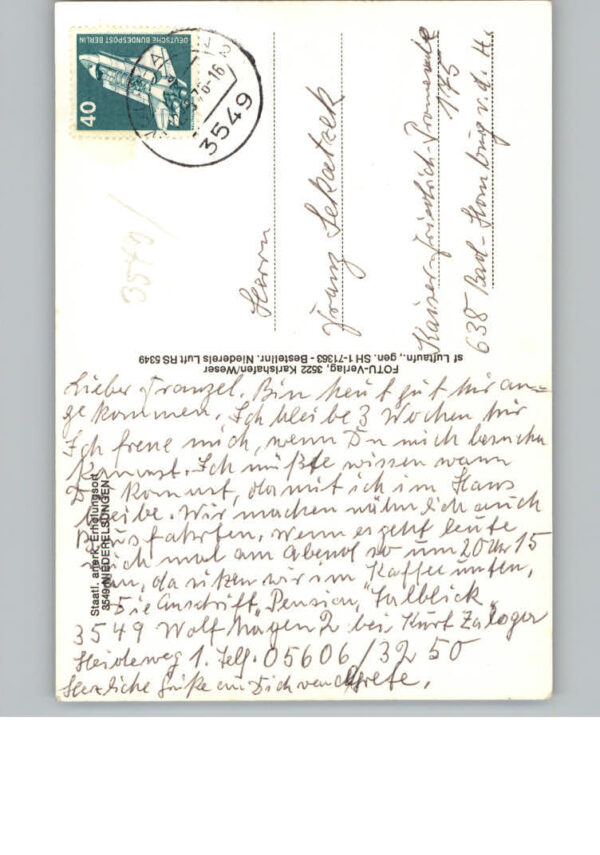 Lieber Franzel. Bin heut gut hir an=
gekommen. Ich bleibe 3 Wochen hir
Ich freue mich, wenn Du mich besuchen
kommst. Ich müßte wissen wann
Du kommst, damit ich im Haus
bleibe. Wir machen nähmlich auch
Ausfahrten, wenn es geht leute
mich mal am Abend so um 20 Uhr 15
an, da sitzen wir im Kaffee unten,
Die Anschrift "Pension" Talblick"
3549 Wolfhagen 2 bei Kurt Zaloger
Heideweg 1. Telf. 05606/3250
Herzliche Grüße an Dich von Grete.
Staatl. anerk. Erholungsort
3549 NIEDERELSUNGEN
FOTU-Verlag, 3522 Karlshafen/Weser
sf Luftaufn., gen. SH 1-71363 - Bestellnr. Niederels Luft RS 5349
3549/
DEUTSCHE BUNDESPOST BERLIN
40
3549
Herrn
Franz Sekatzek
Kaiser-Friedrich-Promenade
175
638 Bad-Homburg v. d. H.